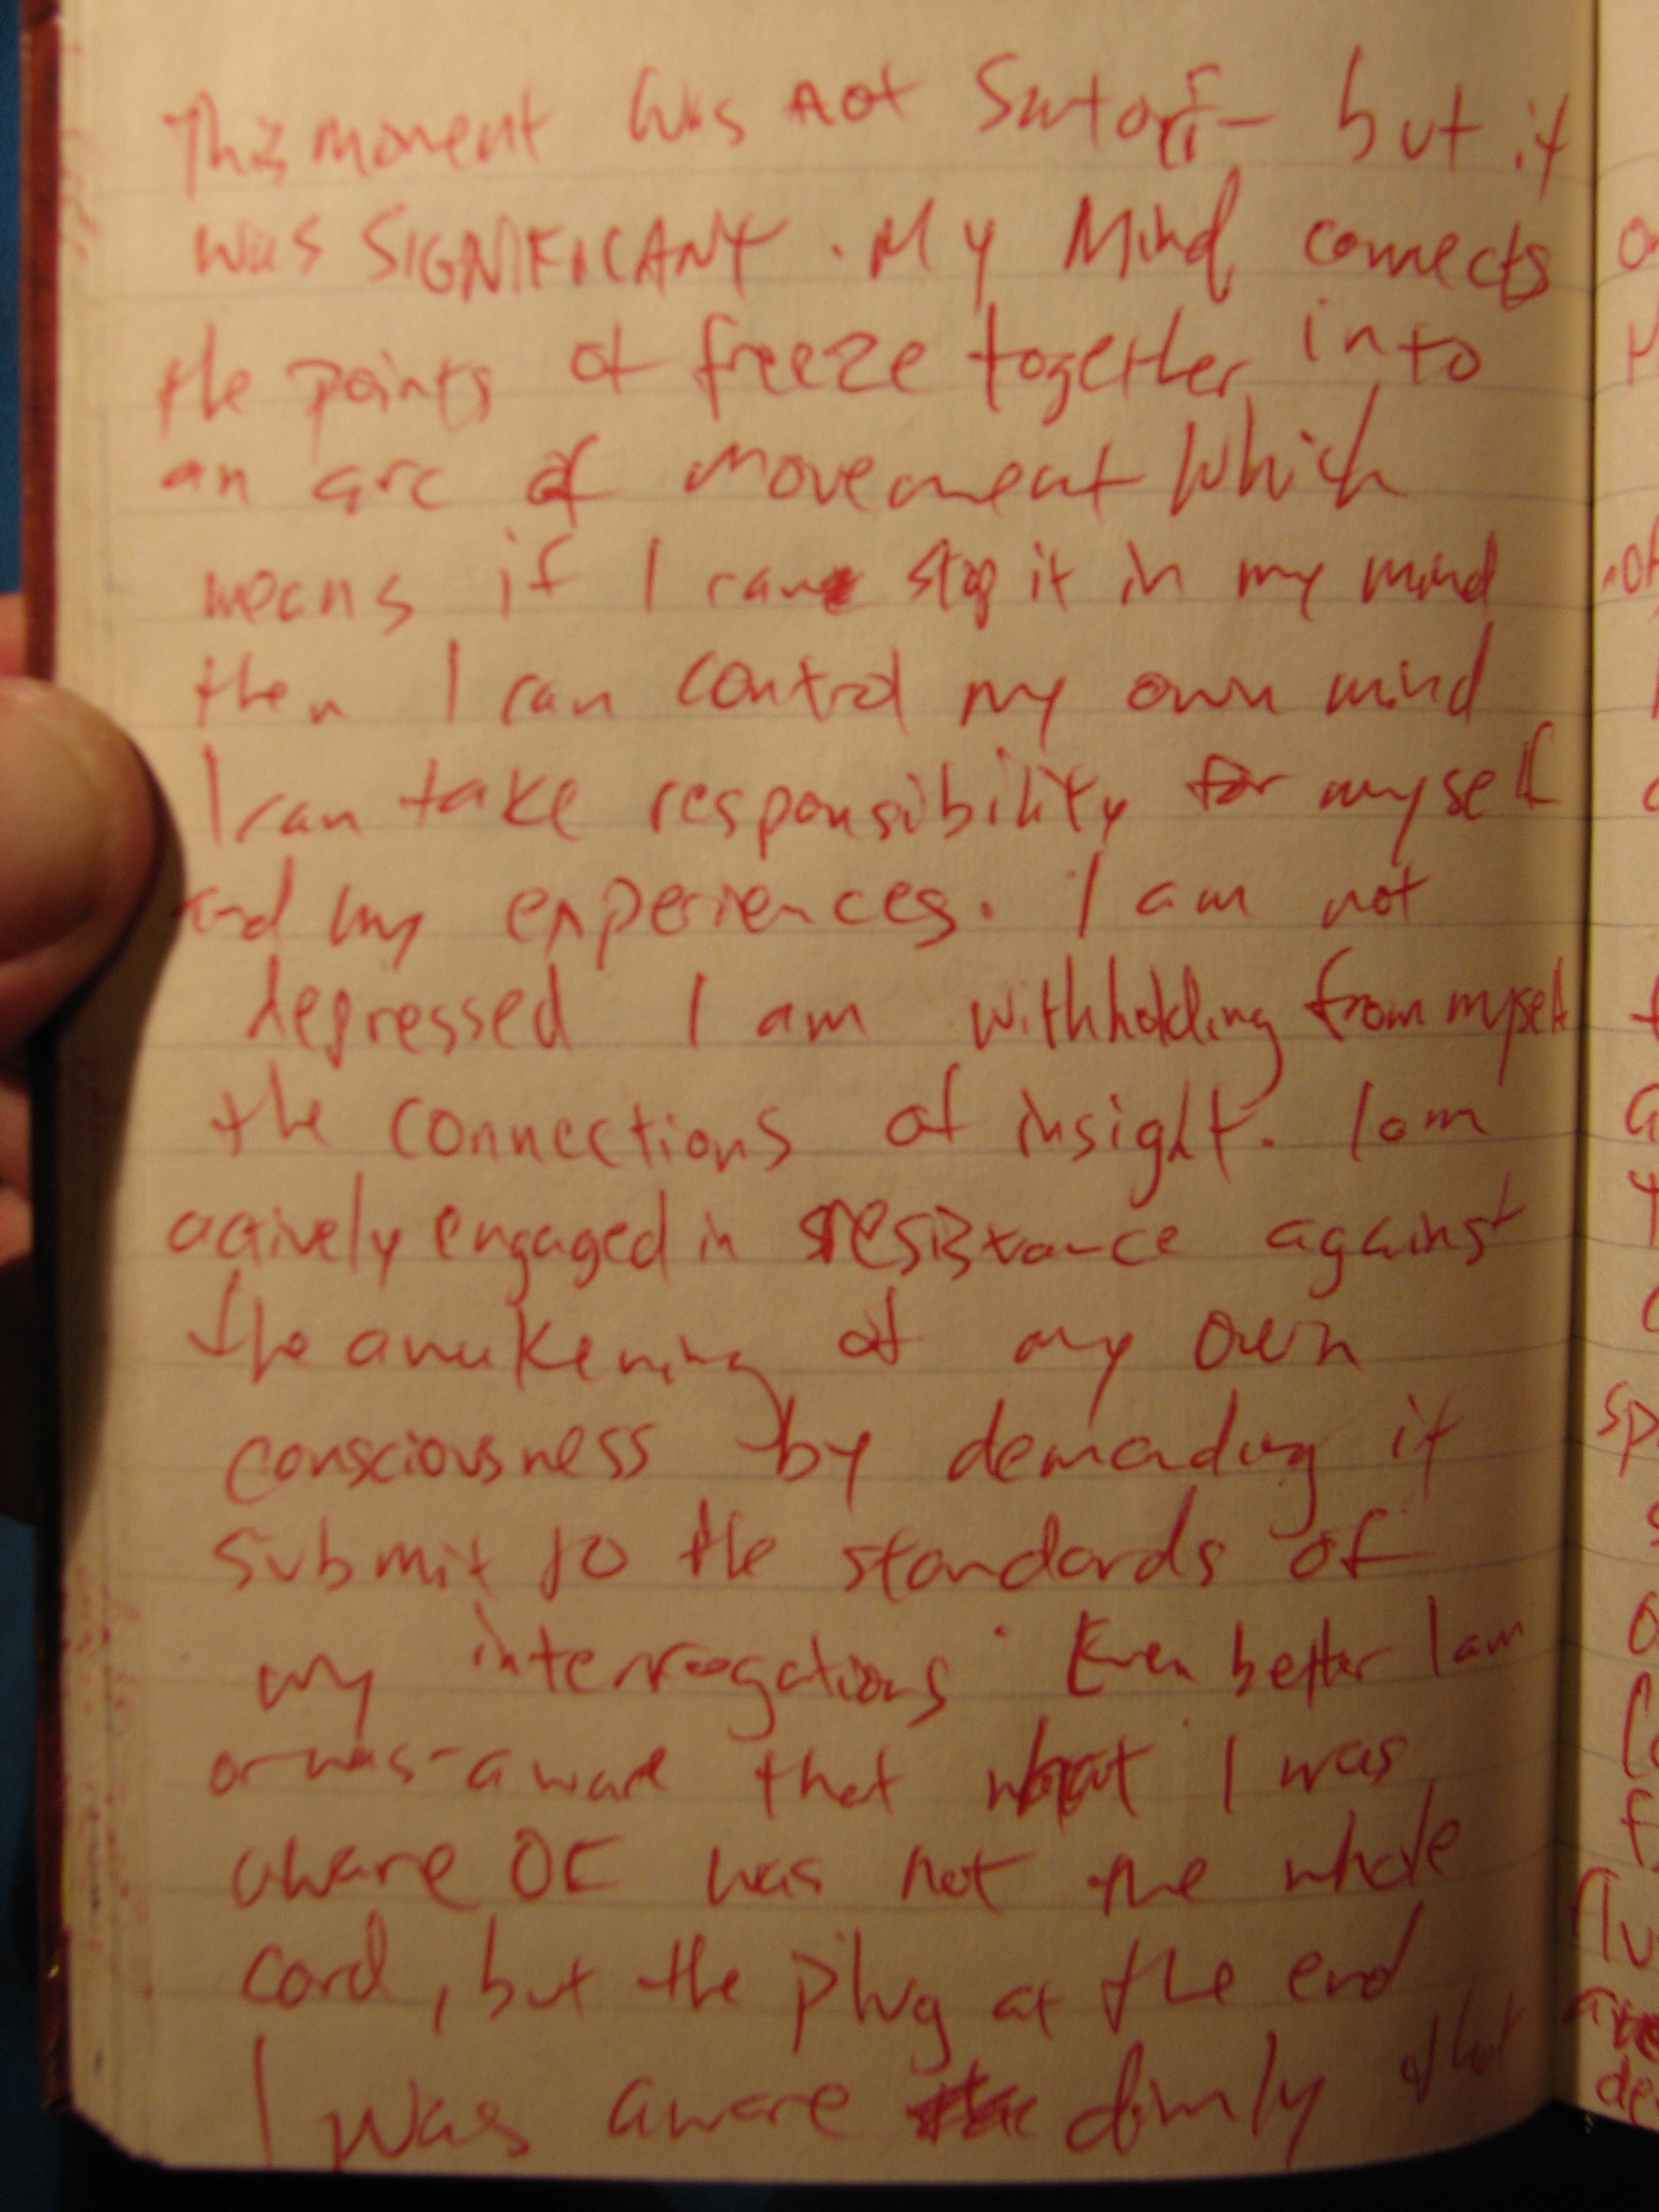 This moment was not Satori- but it
was SIGNIFICANT. My Mind connects
the points of freeze together into
an arc of movement which
means if I can stop it in my mind
then I can control my own mind
I can take responsibility for myself
and my experiences. I am not
depressed I am withholding from myself
the connections of insight. I am
actively engaged in resistance against
the awakening of my own
consciousness by demanding it
submit to the standards of
my interrogations. Even better I am
or-was-aware that what I was
aware of was not the whole
cord, but the plug at the end
I was aware dimly that